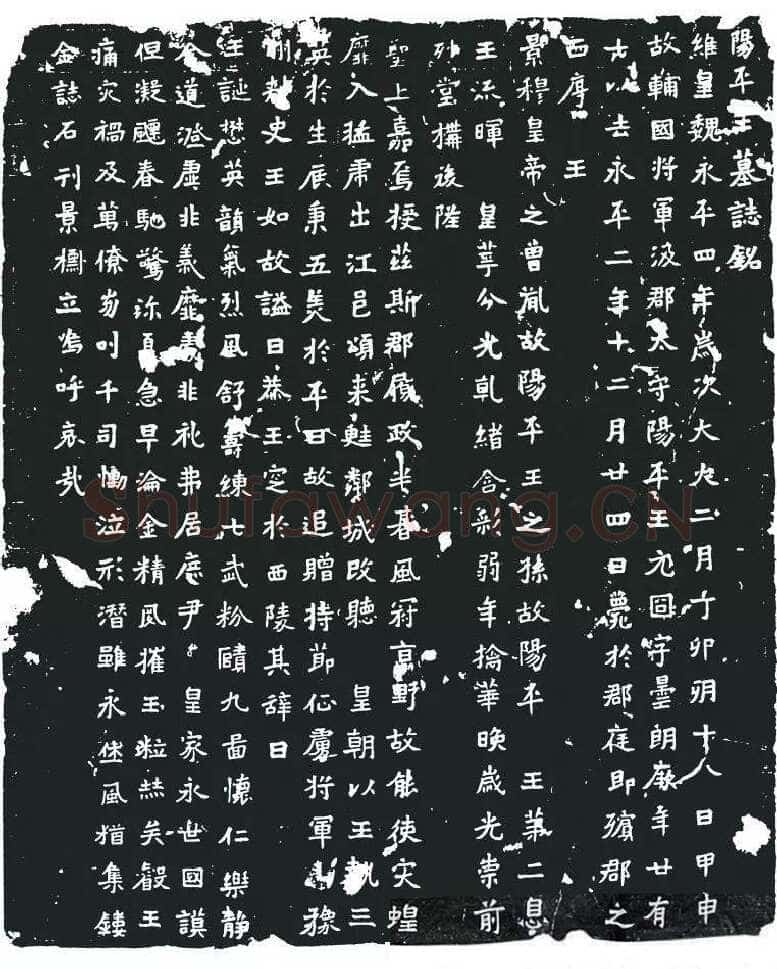 陽平王墓誌銘
維皇魏永平四年歲次大火二月丁卯朔十八日甲申
故輔國將軍汲郡太守陽平王元冏字曇朗厥年廿有
六以去永平二年十二月廿四日薨於郡庭即殯郡之
西序 王
景穆皇帝之曾胤故陽平王之孫故陽平 王第二息
王流暉 皇萼分光乹緒含彩弱年摛華晚歲光崇前
列堂構後陞
聖上嘉焉授茲斯郡履政半暮風冠高野故能使灾蝗
靡入猛虎出江邑頌来鮭鄰城改聽 皇朝以王執三
英於生辰秉五美於平日故追贈持節征虜将軍 豫
州刺史王如故謚曰恭王窆於西陵其辭曰
王誕懋英韻氣烈風舒壽練六武粉賾九畐懷仁樂静

道澄虛非義靡 非礼弗居庶尹 皇家永世國謨
但凝飈春馳驚 夏急早淪金精夙摧玉粒 矣叡王
痛灾禍及萬僚 叫千司慟泣形潜雖永 風猶集鏤
金誌石刊景 立嗚呼哀哉
Shufawang.CN